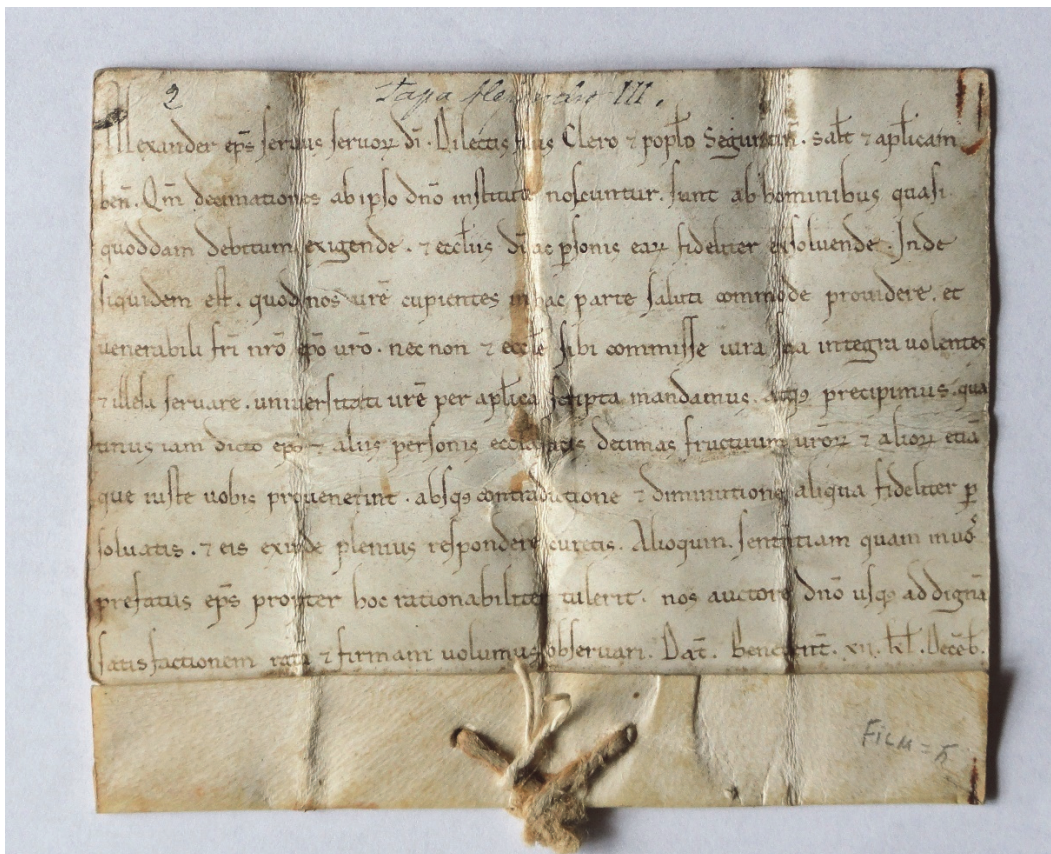 2 Papa Alexandro III.
Alexander ep̄s servus servoꝝ dī. Dilectis filiis Clero ⁊ pop̄lo Seguntin̄. salt̄ ⁊ ap̄licam
ben̄. Qm̄ decimationes ab ipso dn̄o institute noscuntur. sunt ab hominibus quasi
quoddam debitum exigende. ⁊ eccl̄iis dī ac p̱sonis eaꝝ fideliter exsoluende. Inde
siquidem est. quod nos vr̄e cupientes in hac parte saluti commode providere. et
venerabili fr̄i nr̄o ep̄o vr̄o. nec non ⁊ eccl̄e sibi commisse iura sua integra volentes
⁊ illesa servare. universitati vr̄e per ap̄lica scripta mandamus. atqꝫ precipimus. qua
tinus iam dicto ep̄o ⁊ aliis personis eccl̄iasticis decimas fructuum vr̄oꝝ ⁊ alioꝝ etiā
que iuste vobis provenerint. absqꝫ contradictione ⁊ diminutione aliqua fideliter p̱
soluatis. ⁊ eis exinde plenius respondere curetis. Alioquin. sententiam quam in vos
prefatus ep̄s propter hoc rationabiliter tulerit. nos auctore dn̄o usqꝫ ad dignā
satisfactionem ratā ⁊ firmam volumus observari. Dat̄. Benevent̄. xii. kl̄. Decēb̄.
FiLM = 5